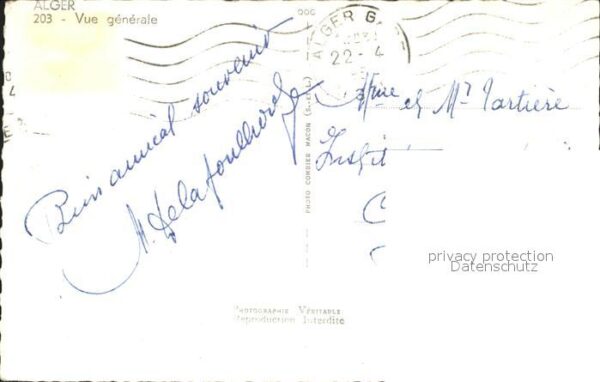 ALGER
203 - Vue générale
ALGER G
22-4
Bien amical souvenir
M. Delafoulhouze
Mme et Mr Tartière
Instit
PHOTO COMBIER MACON
privacy protection
Datenschutz
PHOTOGRAPHIE VÉRITABLE
Reproduction Interdite